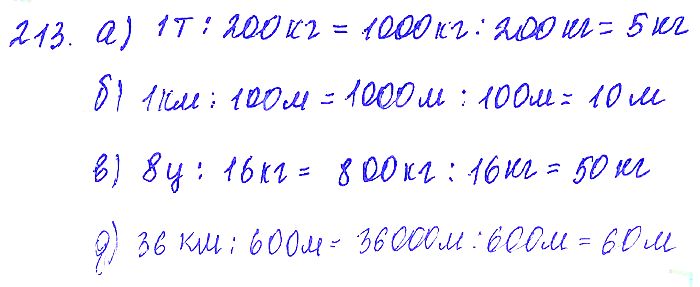 213. а) 1т : 200кг = 1000кг : 200кг = 5кг
б) 1км : 100м = 1000м : 100м = 10м
в) 8ц : 16кг = 800кг : 16кг = 50кг
д) 36км : 600м = 36000м : 600м = 60м